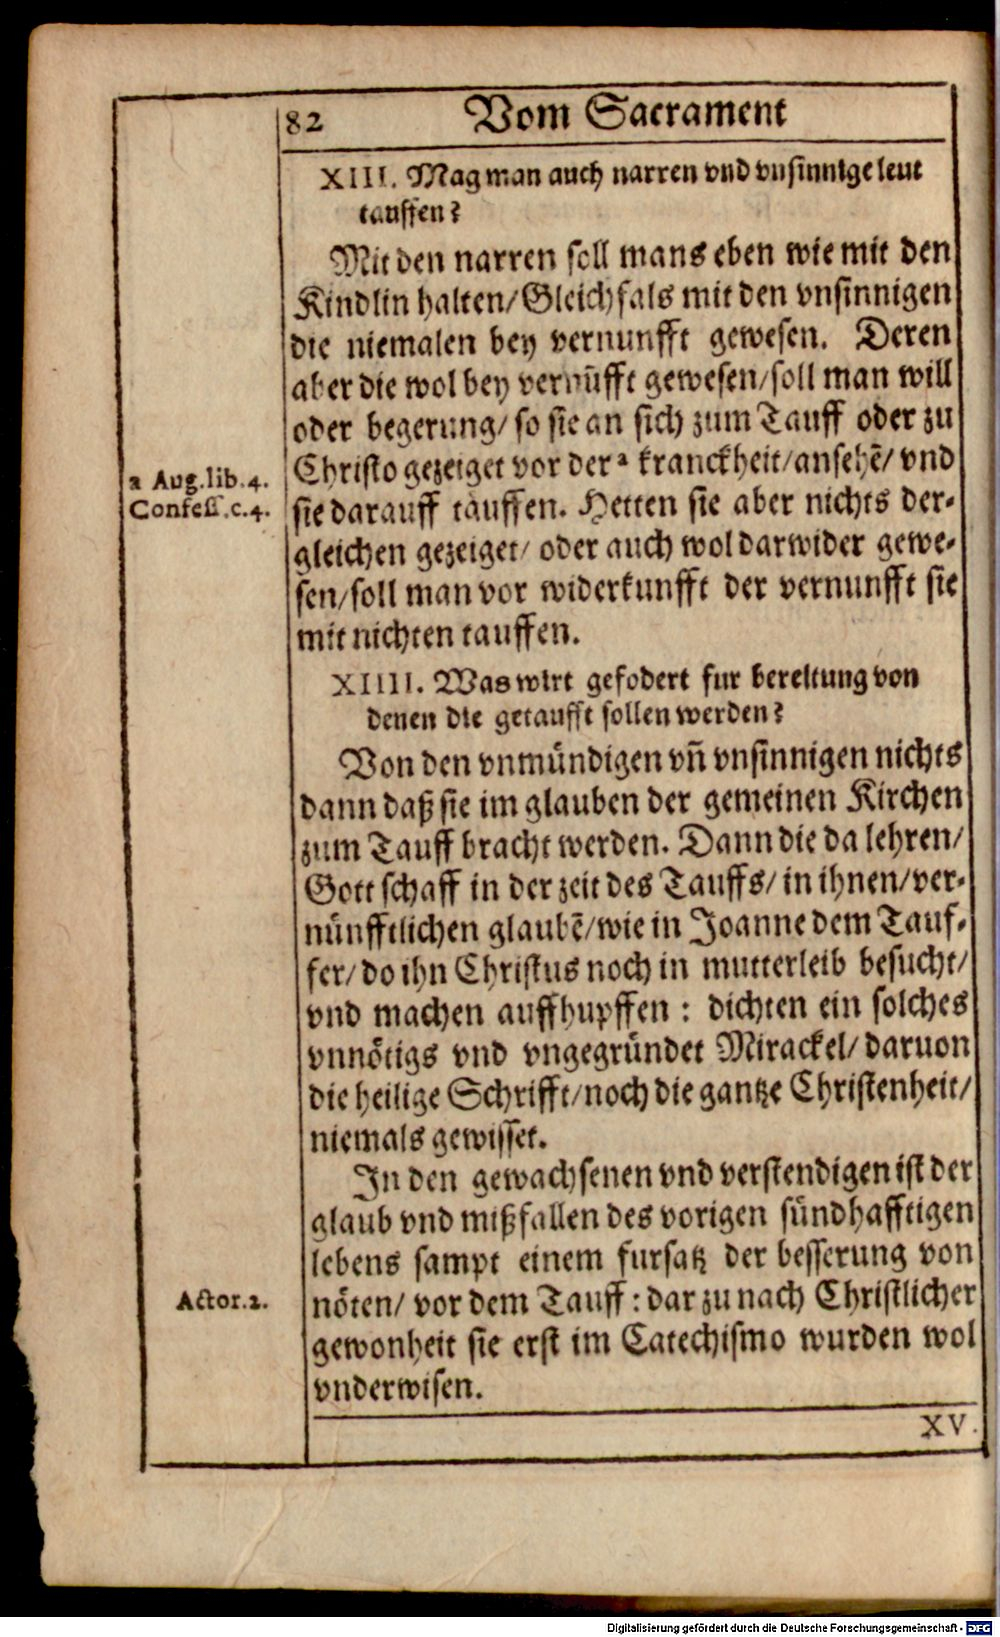 82 Vom Sacrament
XIII. Mag man auch narren vnd vnsinnige leut
tauffen?
Mit den narren soll mans eben wie mit den
Kindlin halten/ Gleichfals mit den vnsinnigen
die niemalen bey vernunfft gewesen. Deren
aber die wol bey vernũfft gewesen/ soll man will
oder begerung/ so sie an sich zum Tauff oder zu
Christo gezeiget vor der a kranckheit/ ansehẽ/ vnd
a Aug. lib. 4.
Confess. c. 4.
sie darauff tauffen. Hetten sie aber nichts der-
gleichen gezeiget/ oder auch wol darwider gewe-
sen/ soll man vor widerkunfft der vernunfft sie
mit nichten tauffen.
XIIII. Was wirt gefodert fur bereitung von
denen die getaufft sollen werden?
Von den vnmündigen vñ vnsinnigen nichts
dann daß sie im glauben der gemeinen Kirchen
zum Tauff bracht werden. Dann die da lehren/
Gott schaff in der zeit des Tauffs/ in ihnen/ ver-
nünfftlichen glaubẽ/ wie in Joanne dem Tauf-
fer/ do ihn Christus noch in mutterleib besucht/
vnd machen auffhupffen: dichten ein solches
vnnötigs vnd vngegründet Mirackel/ daruon
die heilige Schrifft/ noch die gantze Christenheit/
niemals gewisset.
In den gewachsenen vnd verstendigen ist der
glaub vnd mißfallen des vorigen sündhafftigen
lebens sampt einem fursatz der besserung von
nöten/ vor dem Tauff: dar zu nach Christlicher
Actor. 2.
gewonheit sie erst im Catechismo wurden wol
vnderwisen.
XV.
Digitalisierung gefördert durch die Deutsche Forschungsgemeinschaft - DFG